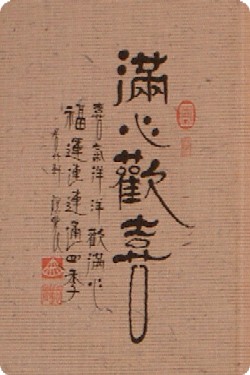 滿心歡喜
喜氣洋洋歡滿心
福運連連通四季